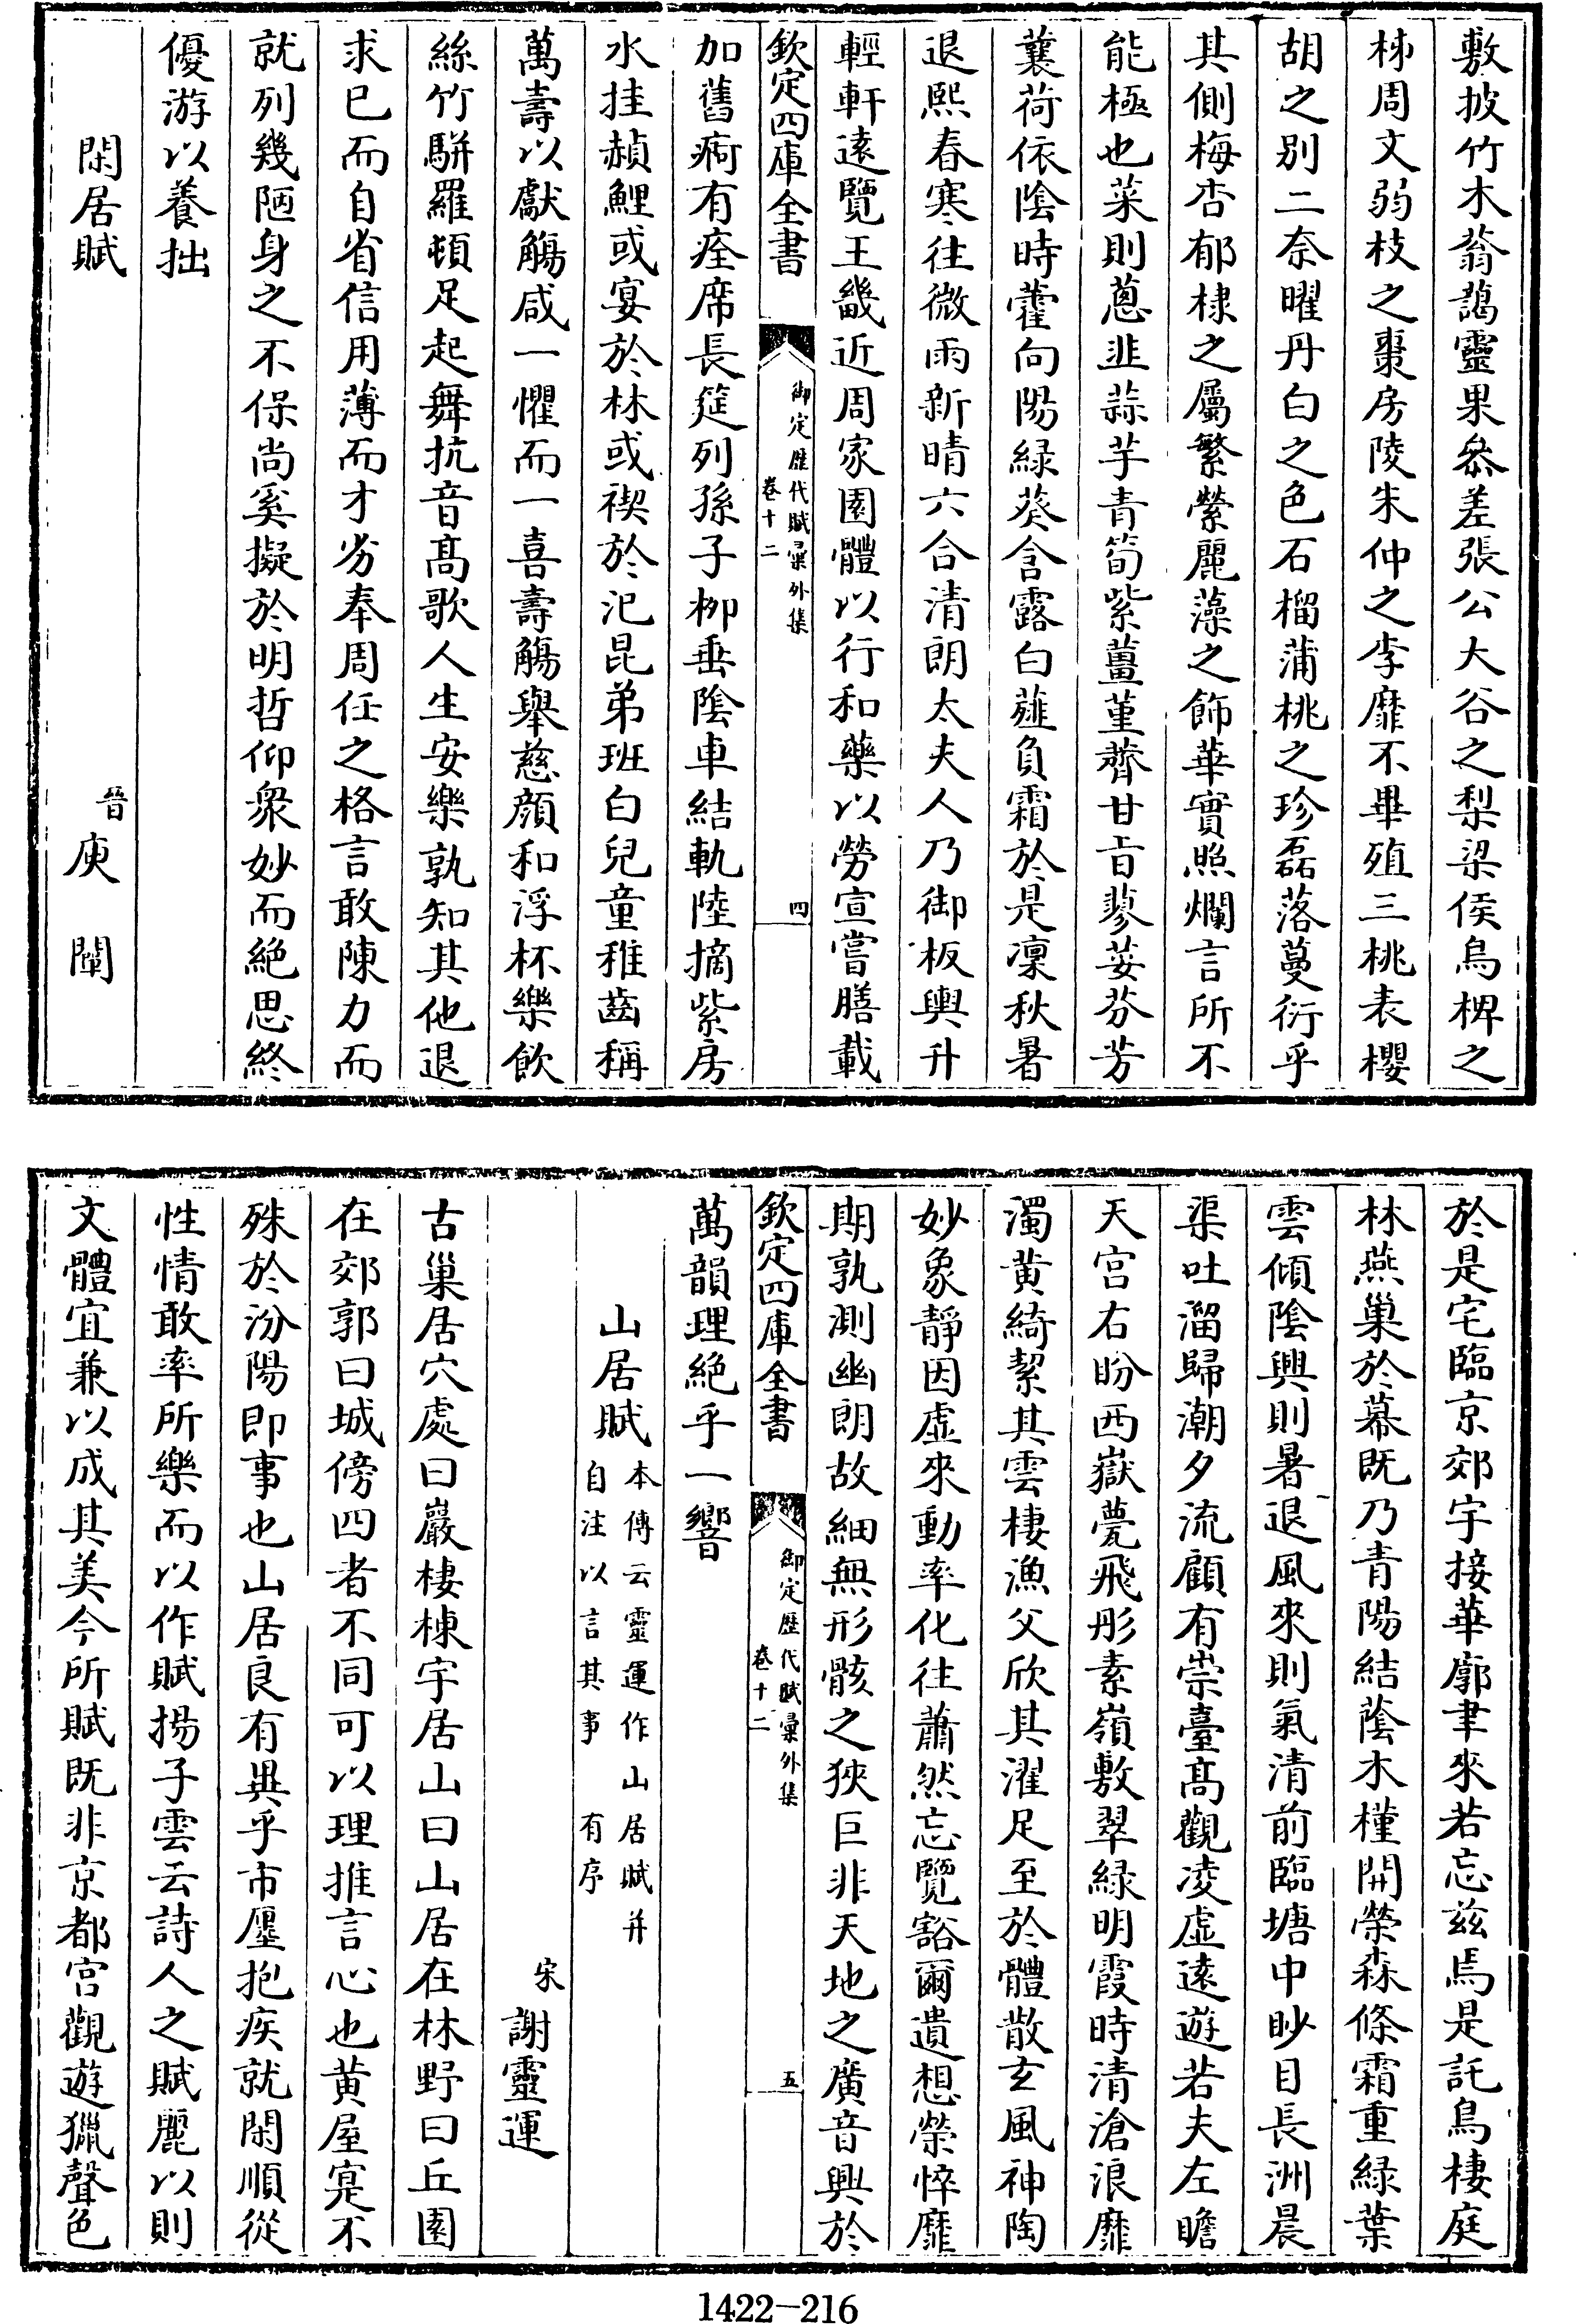 敷披竹木蓊藹靈果叅差張公大谷之梨梁侯烏椑之
柹周文弱枝之棗房陵朱仲之李靡不畢殖三桃表櫻
胡之别二奈曜丹白之色石榴蒲桃之珍磊落蔓衍乎
其側梅杏郁棣之屬繁縈麗藻之飾華實照爛言所不
能極也菜則蔥韭蒜芋青筍紫薑堇薺甘旨蓼荽芬芳
蘘荷依陰時藿向陽緑葵含露白薤負霜於是凜秋暑
退熙春寒往微雨新晴六合清朗太夫人乃御板輿升
輕軒遠覽王畿近周家園體以行和藥以勞宣嘗膳載
欽定四庫全書
御定歴代賦彙外集
卷十二
四
加舊痾有痊席長筵列孫子栁垂陰車結軌陸摘紫房
水挂赬鯉或宴於林或禊於汜昆弟班白兒童稚齒稱
萬壽以獻觴咸一懼而一喜壽觴舉慈顔和浮杯樂飲
絲竹駢羅頓足起舞抗音髙歌人生安樂孰知其他退
求已而自省信用薄而才劣奉周任之格言敢陳力而
就列幾陋身之不保尚奚擬於明哲仰衆妙而絶思終
優游以養拙
閑居賦
晉 庾闡
於是宅臨京郊宇接華廓聿來若忘兹焉是託鳥棲庭
林燕巢於幕既乃青陽結蔭木槿開榮森條霜重緑葉
雲傾陰興則暑退風來則氣清前臨塘中眇目長洲晨
渠吐溜歸潮夕流顧有崇臺髙觀凌虚遠遊若夫左瞻
天宫右盼西嶽甍飛彤素嶺敷翠緑明霞時清滄浪靡
濁黄綺絜其雲棲漁父欣其濯足至於體散玄風神陶
妙象靜因虚來動率化往蕭然忘覽豁爾遺想榮悴靡
期孰測幽朗故細無形骸之狹巨非天地之廣音興於
欽定四庫全書
御定歴代賦彙外集
卷十二
五
萬韻理絶乎一響
山居賦 本傳云靈運作山居賦并
自注以言其事 有序
宋 謝靈運
古巢居穴處曰巖棲棟宇居山曰山居在林野曰丘園
在郊郭曰城傍四者不同可以理推言心也黄屋寔不
殊於汾陽即事也山居良有異乎市㕓抱疾就閑順從
性情敢率所樂而以作賦揚子雲云詩人之賦麗以則
文體宜兼以成其美今所賦既非京都宫觀遊獵聲色
1422—216